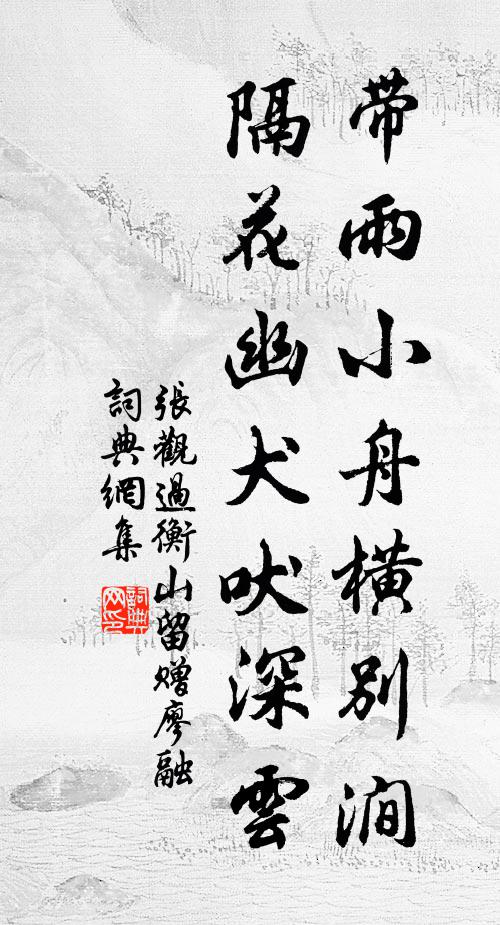 带雨小舟橫別澗
隔花幽犬吠深雲
張觀過衡山留贈廖融
詞典網集
詞典
网印